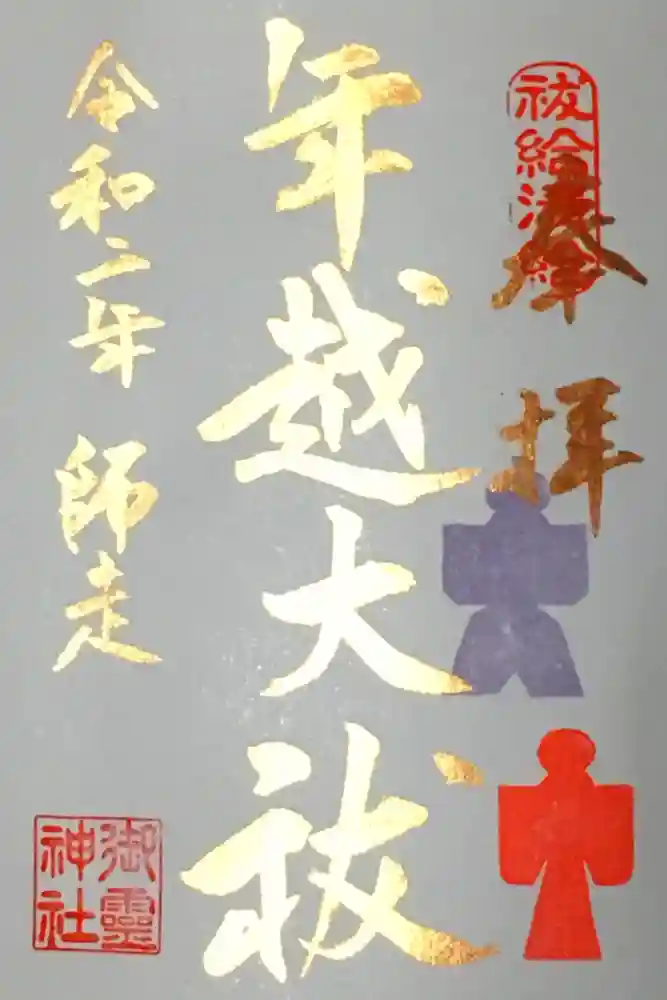 奉拝
祓給清給
年越大祓
令和二年 師走
御靈
神社